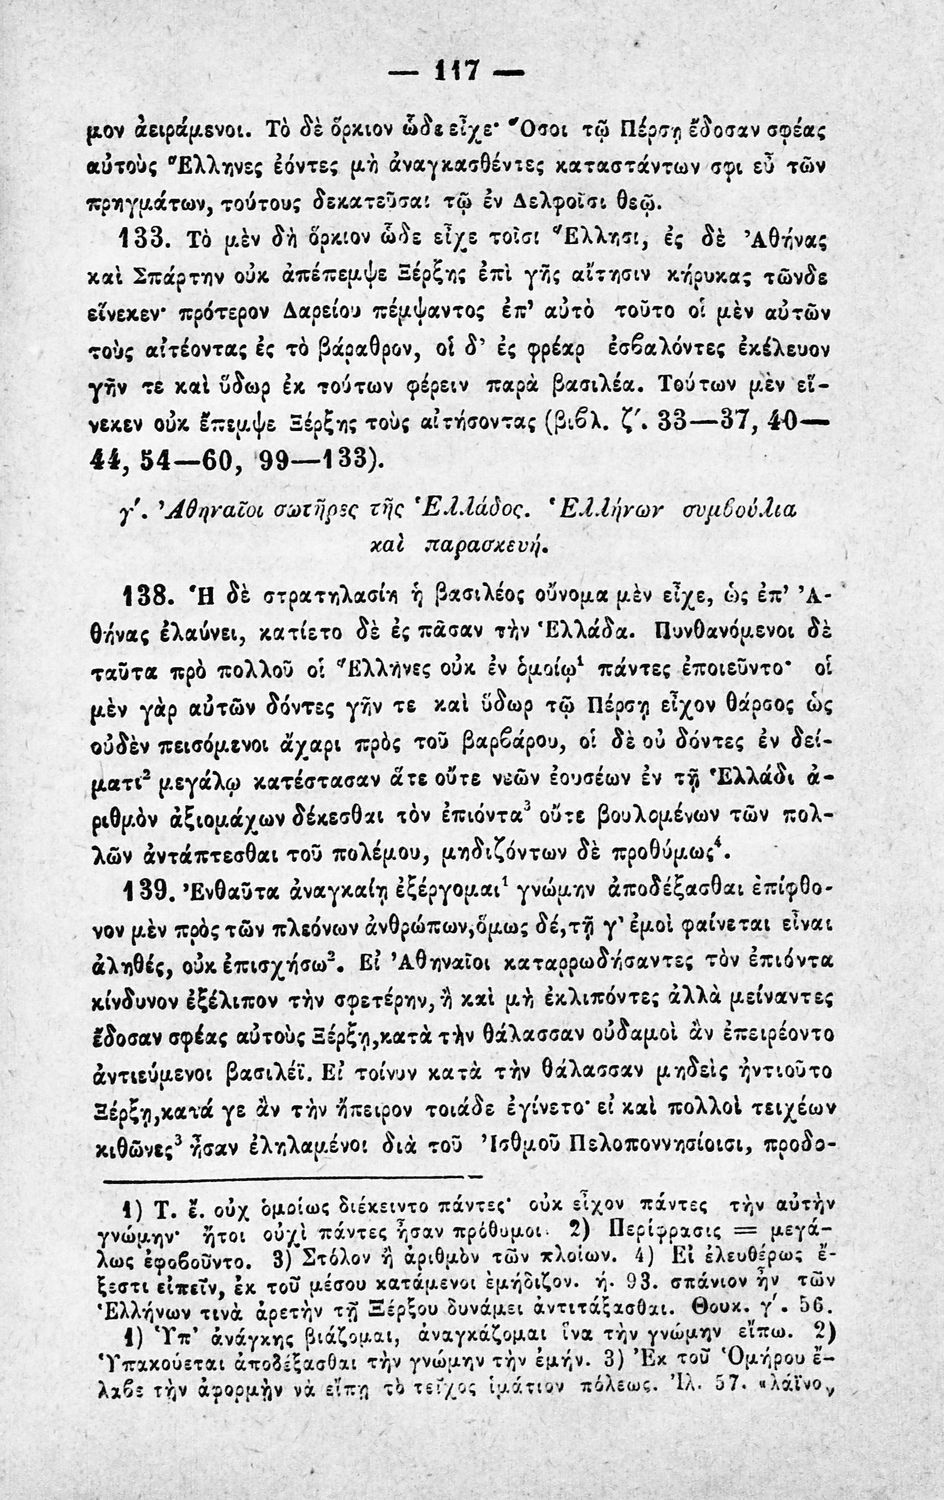 — 117 —
μον ἀειράμενοι. Τὸ δὲ ὅρκιον ὧδε εἶχε· Ὅσοι τῷ Πέρσῃ ἔδοσαν σφέας
αὐτοὺς Ἕλληνες ἐόντες μὴ ἀναγκασθέντες καταστάντων σφι εὖ τῶν
πρηγμάτων, τούτους δεκατεῦσαι τῷ ἐν Δελφοῖσι θεῷ.
133. Τὸ μὲν δὴ ὅρκιον ὧδε εἶχε τοῖσι Ἕλλησι, ἐς δὲ Ἀθήνας
καὶ Σπάρτην οὐκ ἀπέπεμψε Ξέρξης ἐπὶ γῆς αἴτησιν κήρυκας τῶνδε
εἵνεκεν· πρότερον Δαρείου πέμψαντος ἐπ’ αὐτὸ τοῦτο οἱ μὲν αὐτῶν
τοὺς αἰτέοντας ἐς τὸ βάραθρον, οἱ δ’ ἐς φρέαρ ἐσβαλόντες ἐκέλευον
γῆν τε καὶ ὕδωρ ἐκ τούτων φέρειν παρὰ βασιλέα. Τούτων μὲν εἵ-
νεκεν οὐκ ἔπεμψε Ξέρξης τοὺς αἰτήσοντας (βιβλ. ζʹ. 33—37, 40—
44, 54—60, 99—133).
γʹ. Ἀθηναῖοι σωτῆρες τῆς Ἑλλάδος. Ἑλλήνων συμβούλια
καὶ παρασκευή.
138. Ἡ δὲ στρατηλασίη ἡ βασιλέος οὔνομα μὲν εἶχε, ὡς ἐπ’ Ἀ-
θήνας ἐλαύνει, κατίετο δὲ ἐς πᾶσαν τὴν Ἑλλάδα. Πυνθανόμενοι δὲ
ταῦτα πρὸ πολλοῦ οἱ Ἕλληνες οὐκ ἐν ὁμοίῳ¹ πάντες ἐποιεῦντο· οἱ
μὲν γὰρ αὐτῶν δόντες γῆν τε καὶ ὕδωρ τῷ Πέρσῃ εἶχον θάρσος ὡς
οὐδὲν πεισόμενοι ἄχαρι πρὸς τοῦ βαρβάρου, οἱ δὲ οὐ δόντες ἐν δεί-
ματι² μεγάλῳ κατέστασαν ἅτε οὔτε νεῶν ἐουσέων ἐν τῇ Ἑλλάδι ἀ-
ριθμὸν ἀξιομάχων δέκεσθαι τὸν ἐπιόντα³ οὔτε βουλομένων τῶν πολ-
λῶν ἀντάπτεσθαι τοῦ πολέμου, μηδιζόντων δὲ προθύμως⁴.
139. Ἐνθαῦτα ἀναγκαίῃ ἐξέργομαι¹ γνώμην ἀποδέξασθαι ἐπίφθο-
νον μὲν πρὸς τῶν πλεόνων ἀνθρώπων, ὅμως δέ, τῇ γ’ ἐμοὶ φαίνεται εἶναι
ἀληθές, οὐκ ἐπισχήσω². Εἰ Ἀθηναῖοι καταρρωδήσαντες τὸν ἐπιόντα
κίνδυνον ἐξέλιπον τὴν σφετέρην, ἢ καὶ μὴ ἐκλιπόντες ἀλλὰ μείναντες
ἔδοσαν σφέας αὐτοὺς Ξέρξῃ, κατὰ τὴν θάλασσαν οὐδαμοὶ ἂν ἐπειρέοντο
ἀντιεύμενοι βασιλέϊ. Εἰ τοίνυν κατὰ τὴν θάλασσαν μηδεὶς ἠντιοῦτο
Ξέρξῃ, κατά γε ἂν τὴν ἤπειρον τοιάδε ἐγίνετο· εἰ καὶ πολλοὶ τειχέων
κιθῶνες³ ἦσαν ἐληλαμένοι διὰ τοῦ Ἰσθμοῦ Πελοποννησίοισι, προδο-
1) Τ. ἔ. οὐχ ὁμοίως διέκειντο πάντες· οὐκ εἶχον πάντες τὴν αὐτὴν
γνώμην· ἤτοι οὐχὶ πάντες ἦσαν πρόθυμοι. 2) Περίφρασις = μεγά-
λως ἐφοβοῦντο. 3) Στόλον ἢ ἀριθμὸν τῶν πλοίων. 4) Εἰ ἐλευθέρως ἔ-
ξεστι εἰπεῖν, ἐκ τοῦ μέσου κατάμενοι ἐμήδιζον. ή. 93. σπάνιον ἦν τῶν
Ἑλλήνων τινὰ ἀρετὴν τῇ Ξέρξου δυνάμει ἀντιτάξασθαι. Θουκ. γʹ. 56.
1) Ὑπ’ ἀνάγκης βιάζομαι, ἀναγκάζομαι ἵνα τὴν γνώμην εἴπω. 2)
Ὑπακούεται ἀποδέξασθαι τὴν γνώμην τὴν ἐμήν. 3) Ἐκ τοῦ Ὁμήρου ἔ-
λαβε τὴν ἀφορμὴν νὰ εἴπῃ τὸ τεῖχος ἱμάτιον πόλεως. Ἰλ. 57. «λάϊνον